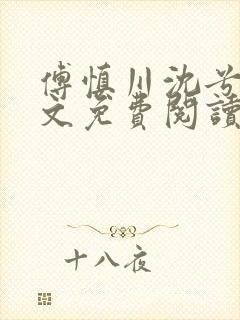 傅慎川沈兮
文免費閱讀
十八夜